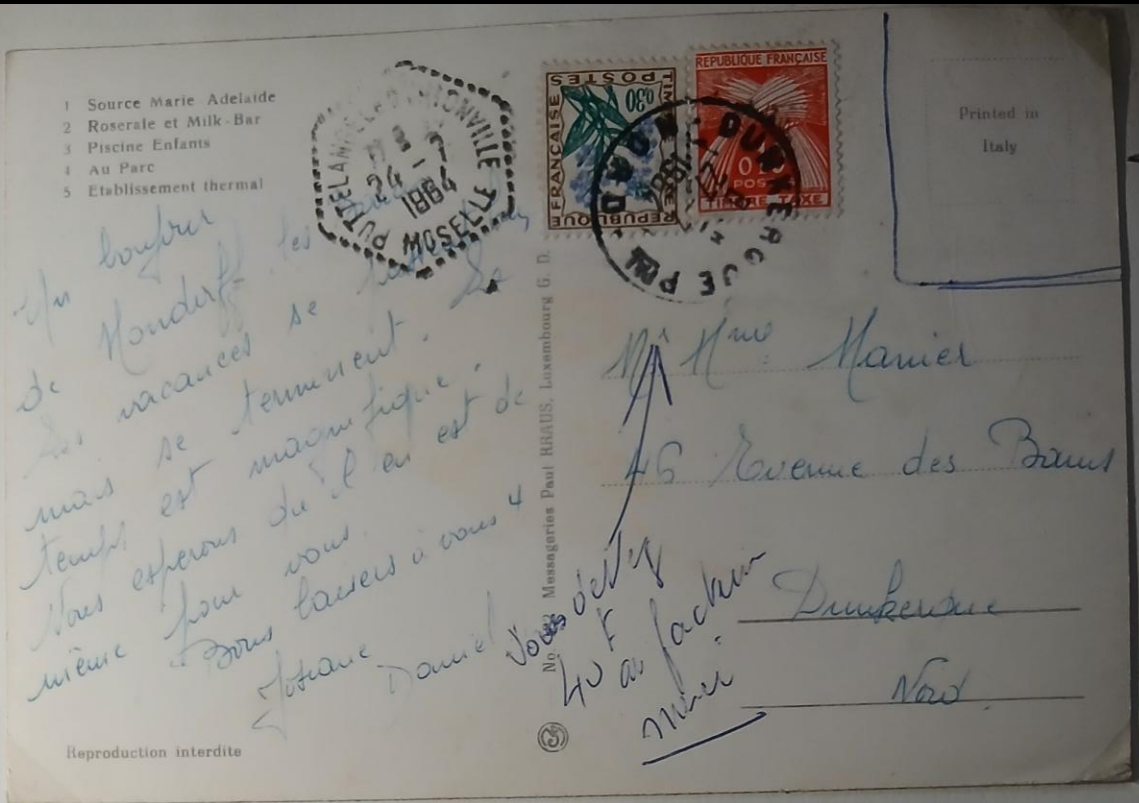 1 Source Marie Adelaide
2 Roseraie et Milk-Bar
3 Piscine Enfants
4 Au Parc
5 Etablissement thermal
MOSELLE
24 -
1964
REPUBLIQUE FRANÇAISE
TIMBRE
POSTES
0,30
REPUBLIQUE FRANÇAISE
POSTES
TIMBRE TAXE
DUNKERQUE PPAL
NORD
Printed in
Italy
Un bonjour
de Mondorf. les
Les vacances se
mais se terminent. Le
temps est magnifique.
Nous esperons qu'il en est de
même pour vous.
Bons baisers à vous 4
Josiane
Daniel
Messageries Paul KRAUS, Luxembourg G. D.
Mr Mme Manier
46 Avenue des Bains
Dunkerque
Nord
Vous devez
40 F
au facteur
merci
Reproduction interdite